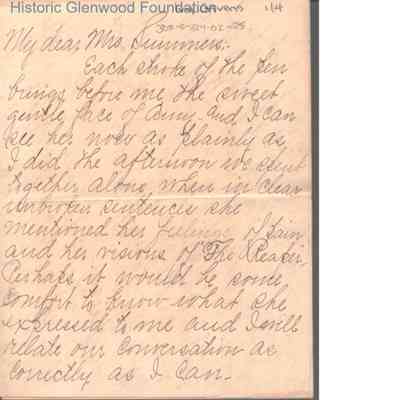 Historic Glenwood Foundation
1/4
My dear Mrs. Summers:-
Each stroke of the pen
brings before me the sweet
gentle face of Amy- and I can
see her now as plainly as
I did the afternoon we spent
together alone, when in clear
unbroken sentences she
mentioned her feelings of pain
and her visions of The Reaper.
Perhaps it would be some
comfort to know what she
expressed to me and I will
relate our conversation as
correctly as I can.